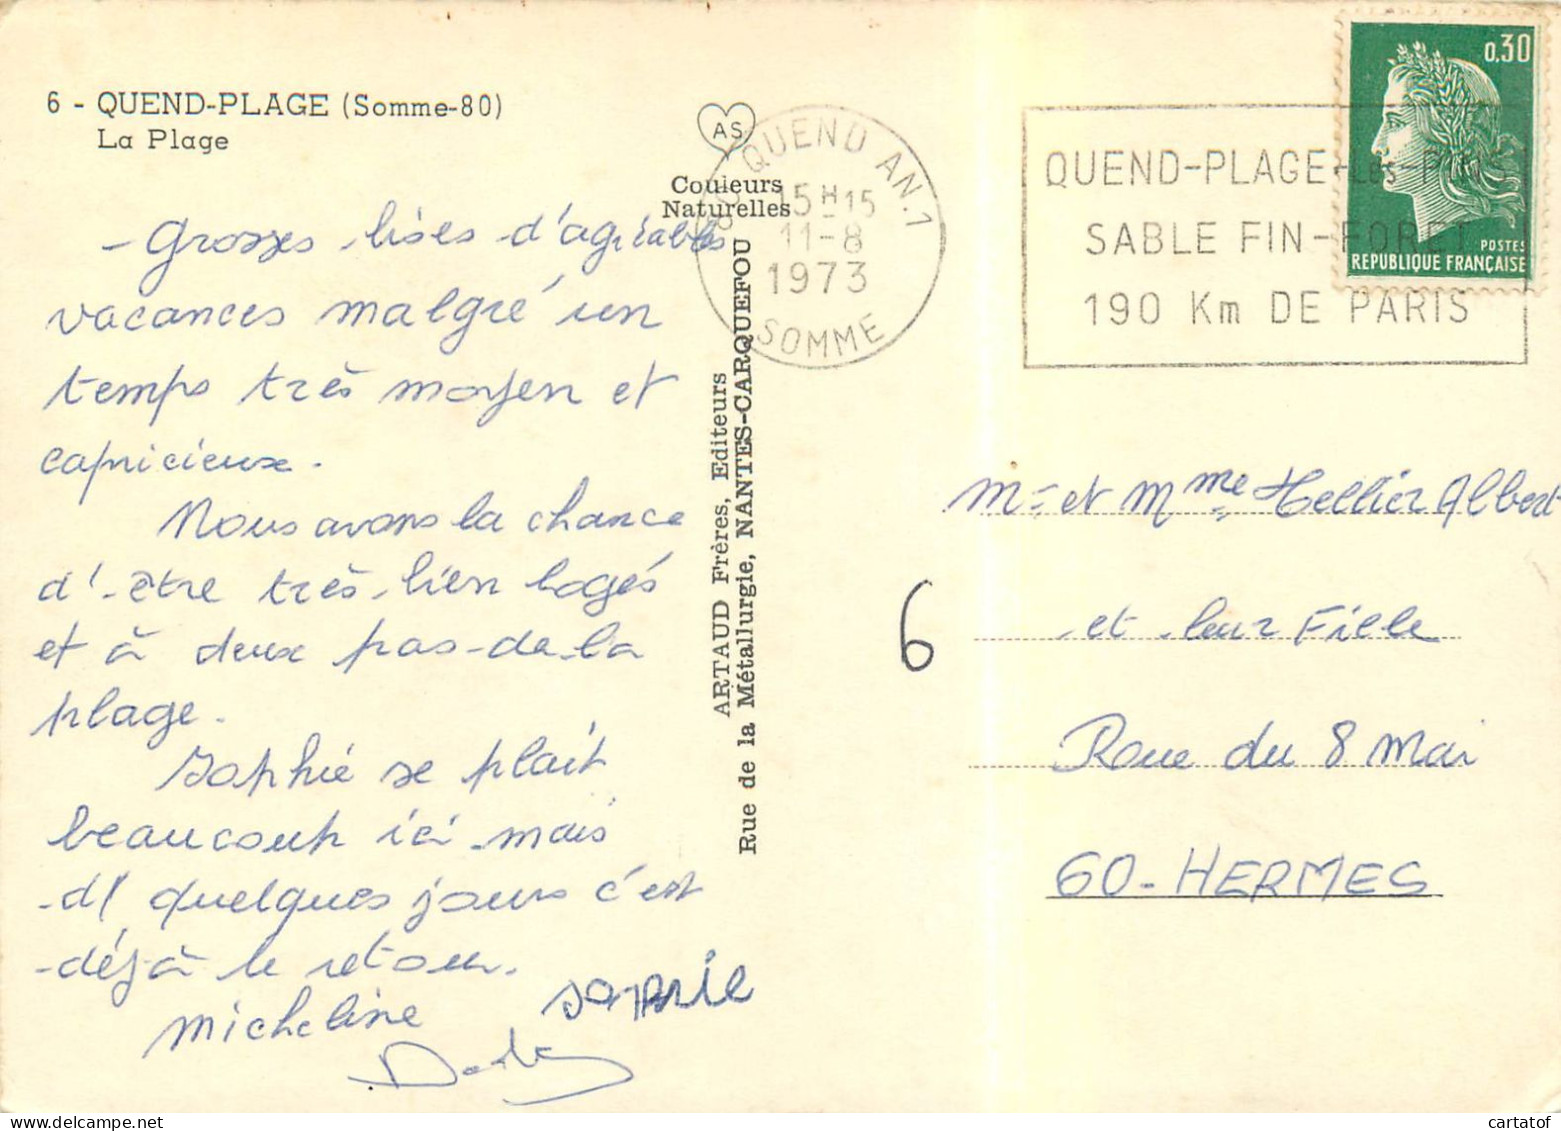 6 - QUEND-PLAGE (Somme-80)
La Plage
AS
Couleurs
Naturelles
80 QUEND AN.1
15H15
11-8
1973
SOMME
QUEND-PLAGE-Les-PINS
SABLE FIN-FORET
190 Km DE PARIS
0,30
POSTES
REPUBLIQUE FRANÇAISE
Grosses bises d'agréables
vacances malgré un
temps très moyen et
capricieux.
Nous avons la chance
d'être très bien logés
et à deux pas de la
plage.
Sophie se plait
beaucoup ici mais
ds quelques jours c'est
déjà le retour.
Micheline
Sophie
ARTAUD Frères, Editeurs
Rue de la Métallurgie, NANTES-CARQUEFOU
6
Mr et Mme Hellier Albert
et leur Fille
Roue du 8 Mai
60-HERMES
cartatof